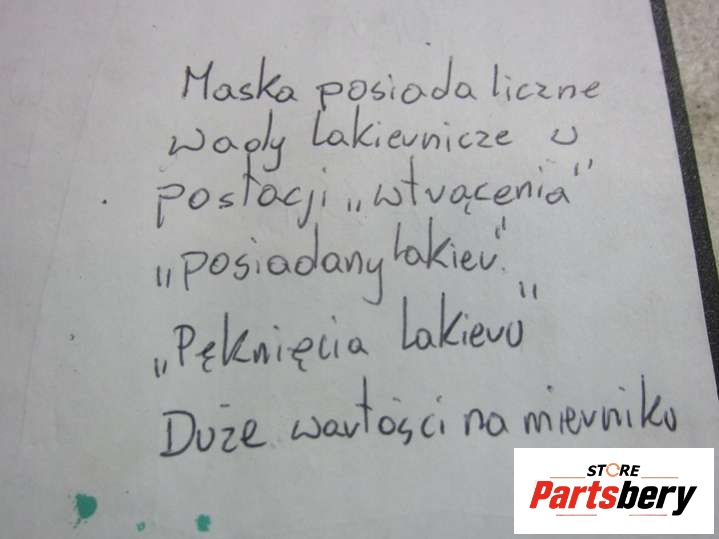 Maska posiada liczne
wady lakiernicze w
postacji „wtrącenia"
„posiadany lakier"
„Pęknięcia lakieru"
Duże wartości na mierniku
STORE
Partsbery